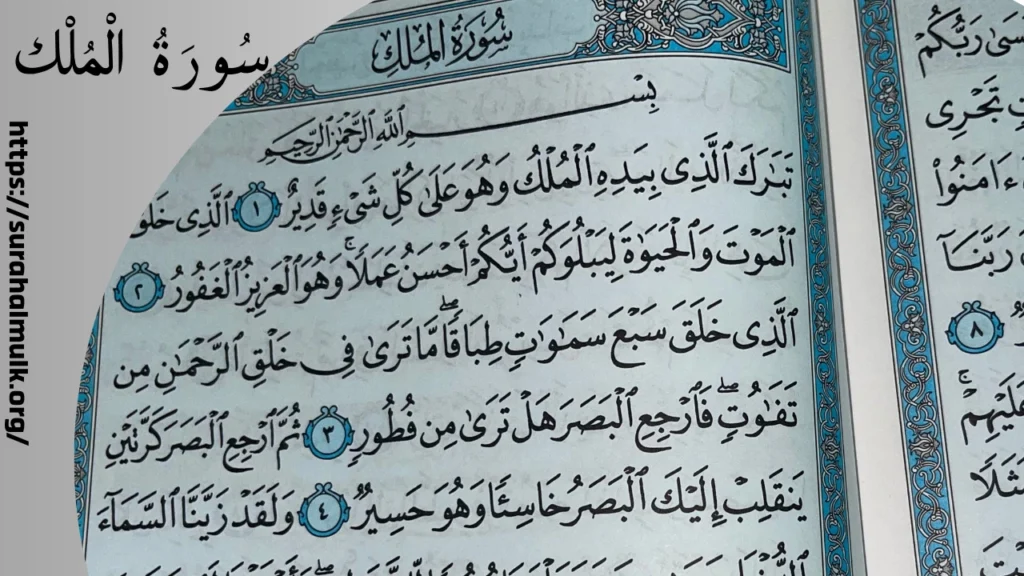 سُورَةُ الْمُلْك
https://surahalmulk.org/
سُورَةُ المُلْكِ
بِسْمِ ٱللَّهِ ٱلرَّحْمَٰنِ ٱلرَّحِيمِ
تَبَٰرَكَ ٱلَّذِى بِيَدِهِ ٱلْمُلْكُ وَهُوَ عَلَىٰ كُلِّ شَىْءٍ قَدِيرٌ ١ ٱلَّذِى خَلَقَ
ٱلْمَوْتَ وَٱلْحَيَوٰةَ لِيَبْلُوَكُمْ أَيُّكُمْ أَحْسَنُ عَمَلًاۚ وَهُوَ ٱلْعَزِيزُ ٱلْغَفُورُ ٢
ٱلَّذِى خَلَقَ سَبْعَ سَمَٰوَٰتٍ طِبَاقًاۖ مَّا تَرَىٰ فِى خَلْقِ ٱلرَّحْمَٰنِ مِن
تَفَٰوُتٍۖ فَٱرْجِعِ ٱلْبَصَرَ هَلْ تَرَىٰ مِن فُطُورٍ ٣ ثُمَّ ٱرْجِعِ ٱلْبَصَرَ كَرَّتَيْنِ
يَنقَلِبْ إِلَيْكَ ٱلْبَصَرُ خَاسِئًا وَهُوَ حَسِيرٌ ٤ وَلَقَدْ زَيَّنَّا ٱلسَّمَآءَ
رَبُّكُمْ
تَجْرِى
ءَامَنُوا۟
رَبَّنَآ
٨